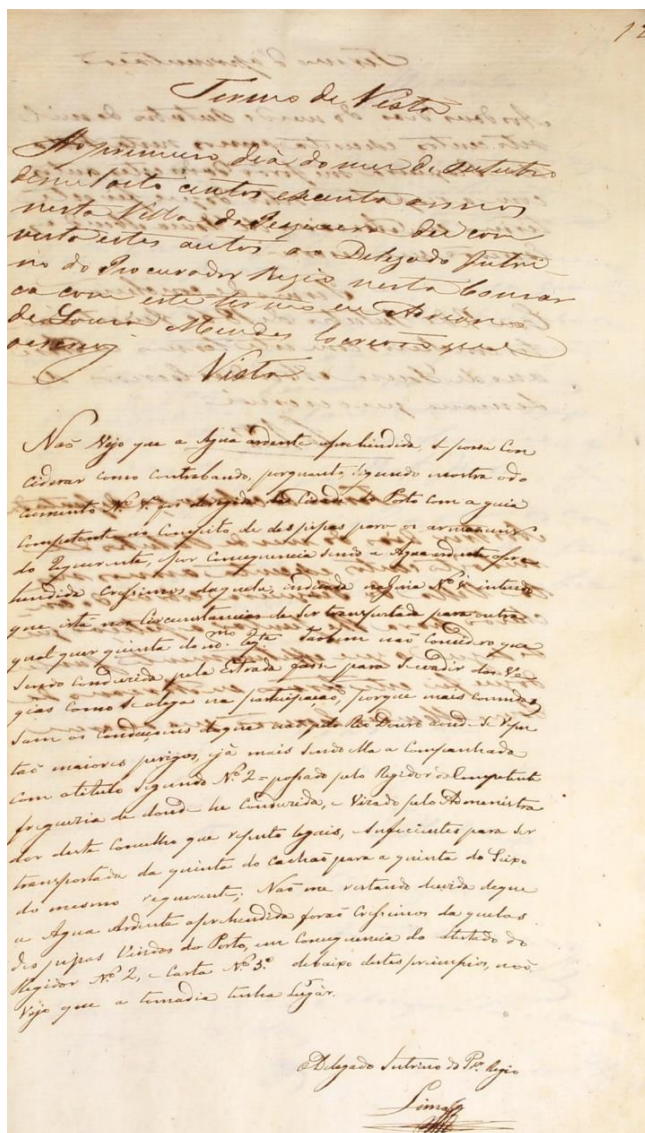 12
Termo de Vista
Ao primeiro dia do mes de Outubro
de mil oito centos escenta annos
nesta Villa de Pesqueira dei com
vista estes autos ao Delegado Intri-
no do Procurador Regio nesta Comar
ca com este termo eu
de Souza Mendes Escrivão que
o escrevi.
Vista
Naõ Vejo que a Agua ardente aprehendida se possa Con
ciderar como Contrabando, porquanto, segundo mostra odo
cumento Nº 1º foi dirigida da Cidade do Porto com a guia
Competente no Conceito de des pipas para os armazens
do Requerente, epor Consequencia sendo a Agua ardente apre-
hendida Cresimos daquela, indicada na Guia Nº 1º intendo
que está nas Circunstancias de Ser transportada para outra
qual quer quinta do mmo Reqte Tambem naõ Considero que
Sendo Conduzida pela Estrada fosse para Se evadir dos Va-
gias como Se alega na participaçaõ, porque mais
Sam as Conduçoens do que pelo Rio Douro aonde Se
taõ maiores perigos, ejá mais Sendo Ella aCompanhada
Com o titulo Segundo Nº 2 = passado pelo Regedor da Competente
freguezia de donde he Conduzida, e Vizado pelo Administra
dor deste Concelho que reputo legais, e suficientes para Ser
transportada da quinta do Cachaõ para a quinta do
do mesmo requerente; Naõ me restando duvida deque
a Agua Ardente aprehendida foraõ Cresimos da quelas
des pipas Vindas do Porto, em Consequencia do Atestado do
Regedor Nº 2, e Carta Nº 3º debaixo destes principios, naõ
Vejo que a tomadia tenha Lugar.
O Delegado Intrino do Pr. Regio
Lima